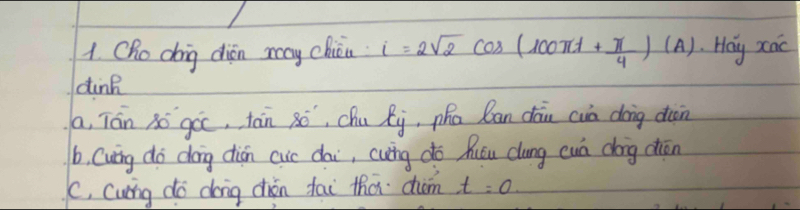 1. Cho dòng điện xoay chiều: i = 2√2 cos (100πt + π/4) (A). Hãy xác
định
a, Tần số góc, tần số, chu kỳ, pha ban đầu của dòng điện
b, Cường độ dòng điện cực đại, cường độ hiệu dụng của dòng điện
C, Cường độ dòng điện tại thời điểm t = 0.